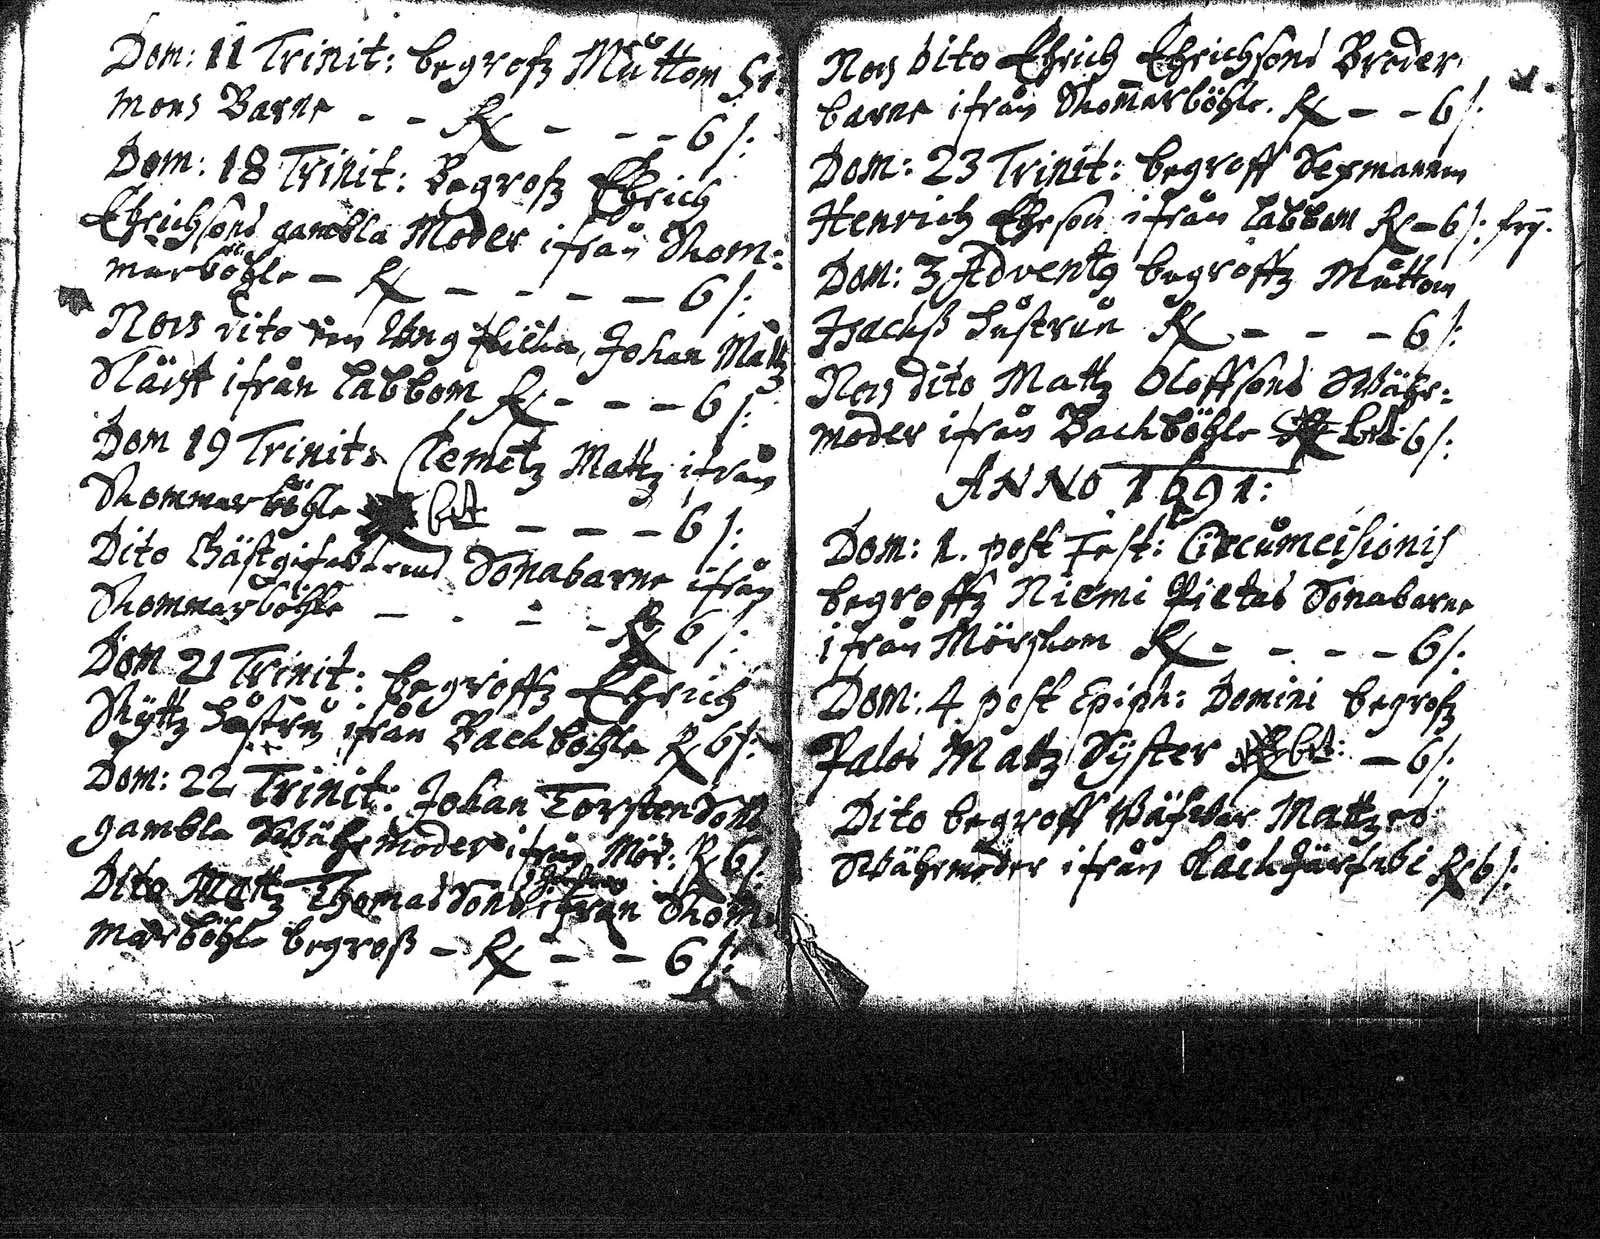 Dom: 11 Trinit: begrofz Måttom Si-
mons Barne - - Rx - - - 6 /:
Dom: 18 Trinit: Begrofz Ehrich
Ehrichsons gambla Moder ifrån Thom:
marböhle - Rx - - - - 6 /:
Noch dito Ung Johan Mattz
ifrån Labbom Rx - - - 6 /:
Dom 19 Trinits Clemetz Mattz ifrån
Thommarböhle bet - - - 6 /:
Dito Sonabarne ifrån
Thommarböhle - - - - Rx 6 /:
Dom 21 Trinit: begroffz Ehrich
Skyttz hustru ifrån Bachböhle Rx 6 /:
Dom: 22 Trinit: Johan Torstensons
gambla Swähr moder ifrån Mör: Rx 6 /:
Dito Mattz Thomasons ifrån Thom
marböhle begroß - Rx - - 6 /:
Noch dito Ehrich Ehrichsons Broder
barne ifrån Thommarböhle. Rx - - 6 /:
Dom: 23 Trinit: begroff Sexmannen
Henrich ifrån Labbom Rx - 6 /: frij.
Dom: 3 Adventz begroffz Måttom
Isachß hustrun Rx - - - 6 /:
Noch dito Mattz Oloffsons Swähr=
moder ifrån Bachböhle bet 6 /:
ANNO 1691:
Dom: 1. post Fest: Circumcisionis
begroffz Niemi Pietas Sonabarne
ifrån Mörskom Rx - - - - 6 /:
Dom: 4 post Epiph: Domini begrofz
Palos Mattz Syster bet: - 6 /:
Dito begroff Mattzes
Swährmoder ifrån Rx 6 /: